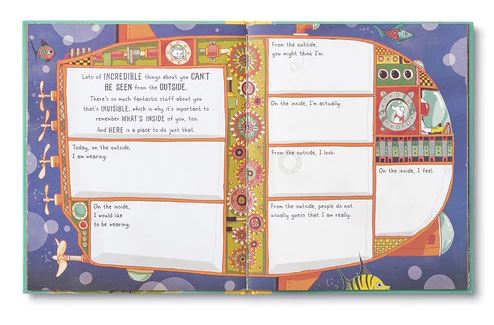 Lots of INCREDIBLE things about you CAN'T
BE SEEN from the OUTSIDE.
There's so much fantastic stuff about you
that's INVISIBLE, which is why it's important to
remember WHAT'S INSIDE of you, too.
And HERE is a place to do just that.
Today, on the outside,
I am wearing:
On the inside,
I would like
to be wearing:
From the outside,
you might think I'm:
On the inside, I'm actually:
From the outside, I look:
On the inside, I feel:
From the outside, people do not
usually guess that I am really: